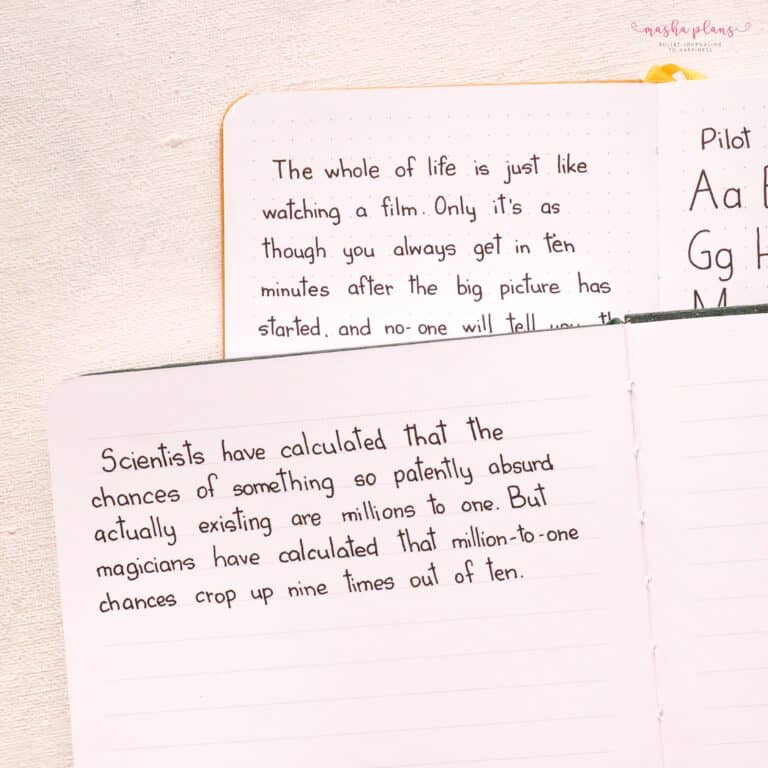 masha plans
BULLET JOURNALING
TO HAPPINESS
The whole of life is just like
watching a film. Only it's as
though you always get in ten
minutes after the big picture has
started, and no-one will tell you
Pilot
Aa
Gg H
M
Scientists have calculated that the
chances of something so patently absurd
actually existing are millions to one. But
magicians have calculated that million-to-one
chances crop up nine times out of ten.